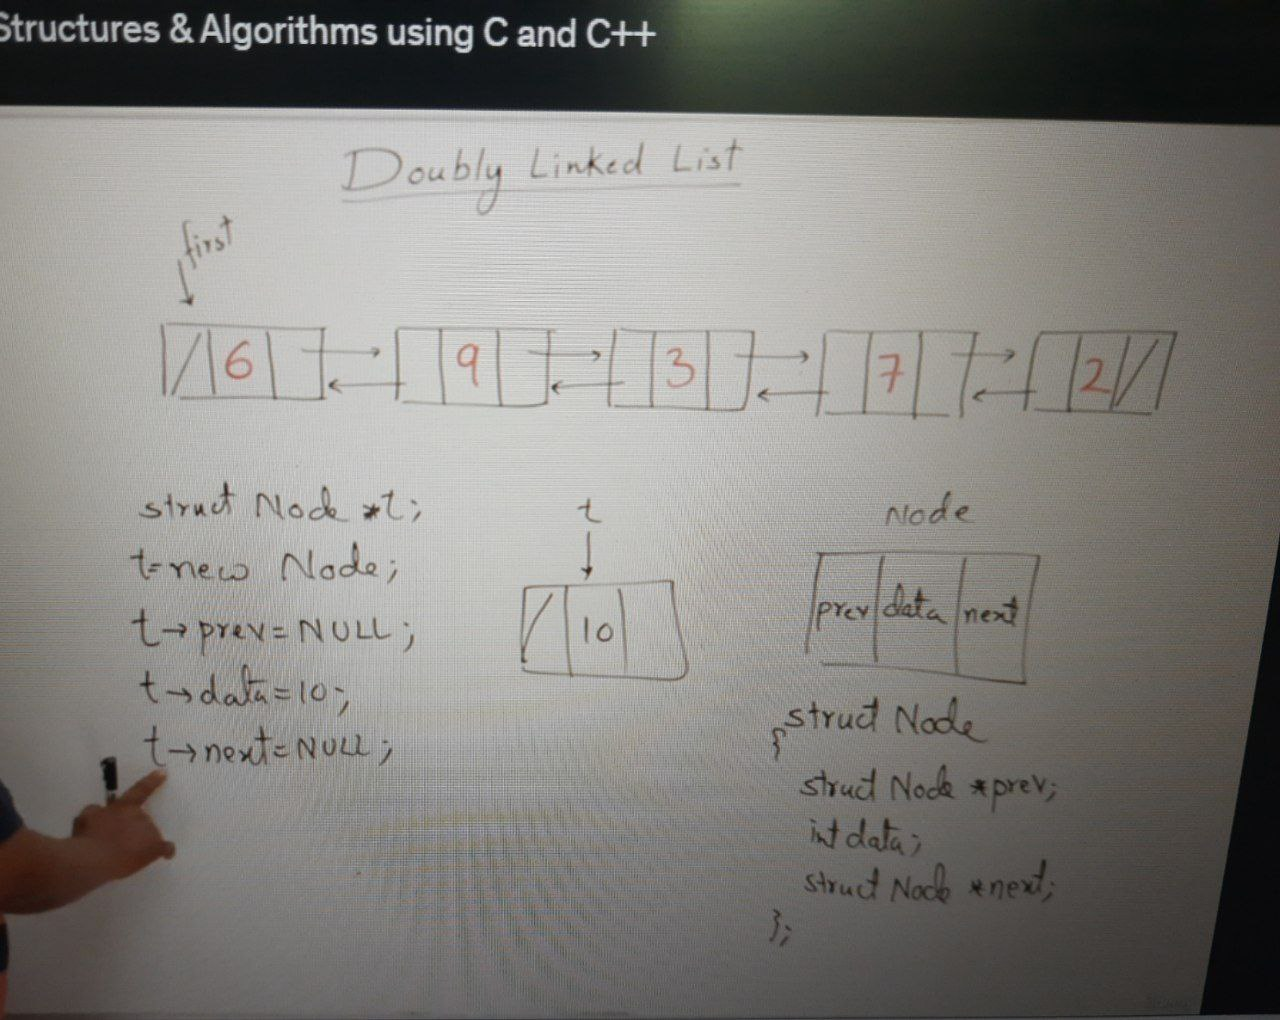 Structures & Algorithms using C and C++
Doubly Linked List
first
6 9 3 7 2
struct Node *t;
t=new Node;
t→prev=NULL;
t→data=10;
t→next=NULL;
t
10
Node
prev data next
struct Node
{
struct Node *prev;
int data;
struct Node *next;
};